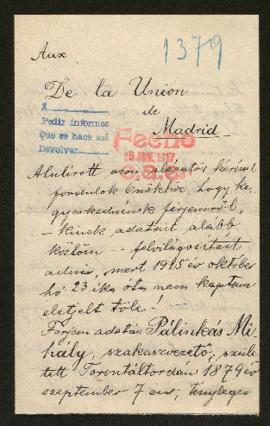 Aux
1379
De la Union
de
Madrid
Pedir informes
Que se hace así
Devolver
Fecho
Alulirott azon alázatos kéréssel
fordulok Önökhöz, hogy ke-
gyeskedjenek férjemről,
- kinek adatait alább
közlöm - felvilágosítást
adni, mert 1915 év október
hó 23 ika óta nem kaptam
életjelt tőle!
Férjem adatai: Pálinkás Mi-
hály, szakaszvezető, szüle-
tett Torontáltordán 1879 év
szeptember 7 én; tényleges